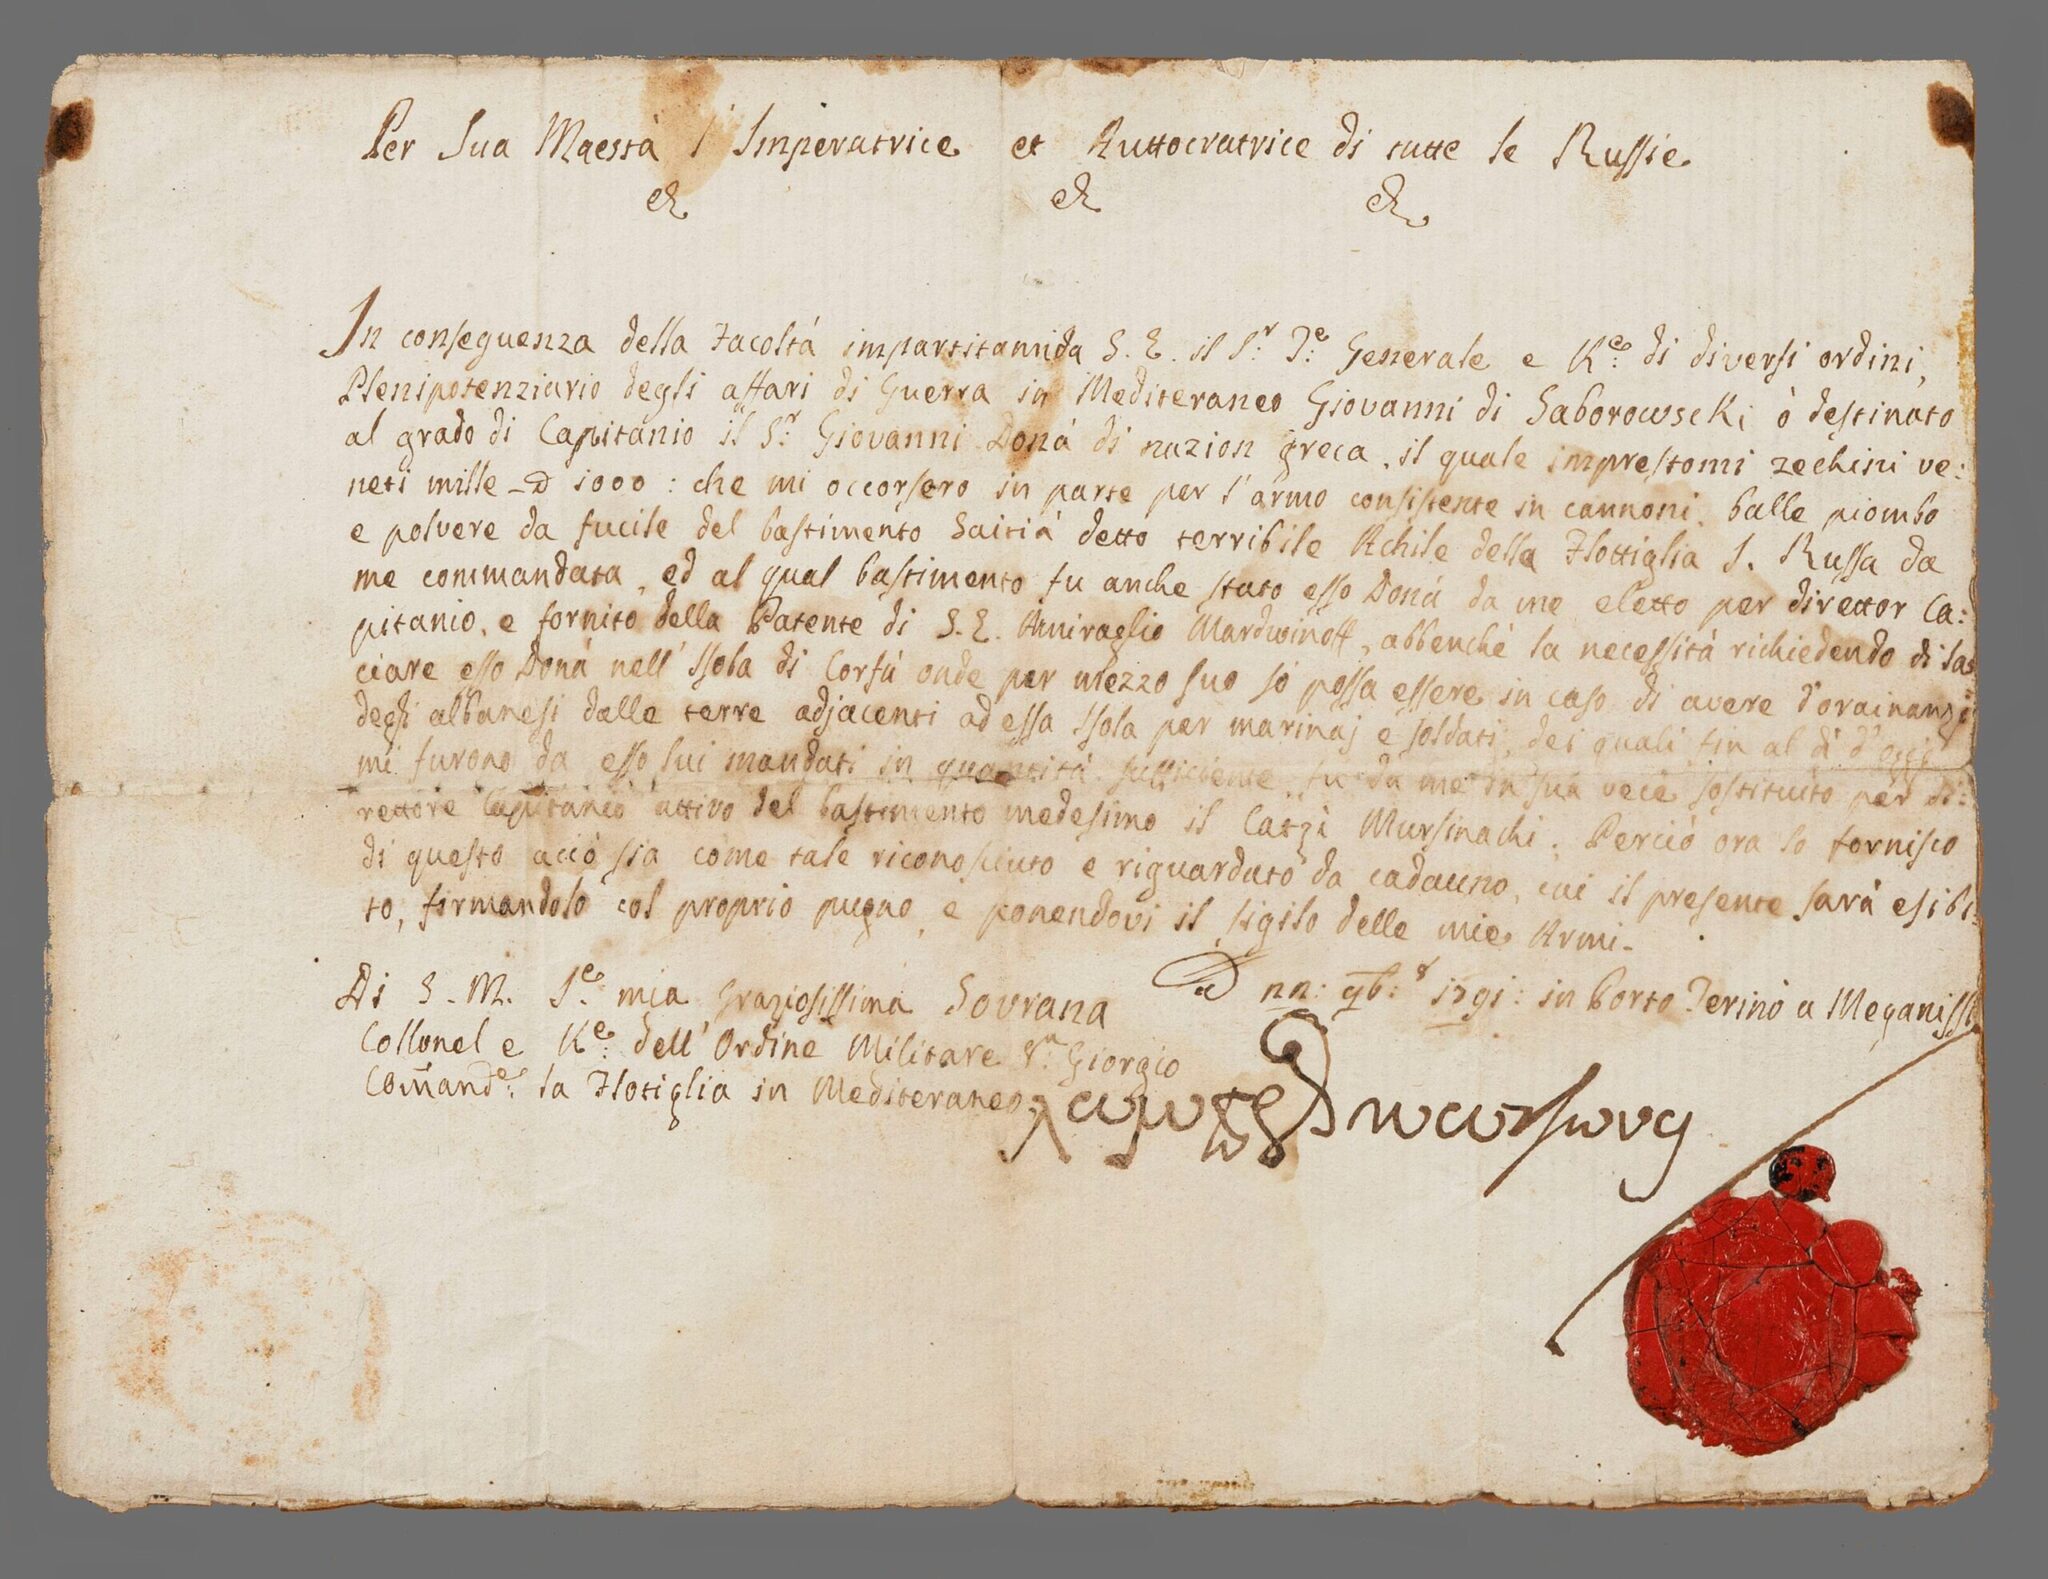 Per Sua Maestà l'Imperatrice et Auttocratrice di tutte le Russie
&c &c &c
In conseguenza della Facoltà impartitami da S. E. il S:r T:e Generale e K:e di diversi ordini,
Plenipotenziario degli affari di Guerra in Mediteraneo Giovanni di Saborowscki ò destinato
al grado di Capitanio il S:r Giovanni Donà di nazion greca, il quale imprestomi zechini ve:
neti mille 1000: che mi occorsero in parte per l'armo consistente in cannoni, balle piombo
e polvere da fucile del bastimento Saitià detto terribile Achile della Flottiglia I. Russa da
me commandata, ed al qual bastimento fu anche stato esso Donà da me eletto per direttor Ca:
pitanio, e fornito della Patente di S. E. Amiraglio Mardwinoff, abbenchè la necessità richiedendo di las
ciare esso Donà nell'Isola di Corfù onde per mezzo suo io possa essere in caso di avere d'orainanzi
degli albanesi dalle terre adjacenti ad essa Isola per marinaj e soldati, dei quali fin al dì d'oggi
mi furono da esso lui mandati in quantità sufficiente, fu da me in sua vece sostituito per di:
rettore Capitanio attivo del bastimento medesimo il Catzì Mursinachi; Perciò ora lo fornisco
di questo acciò sia come tale riconosciuto e riguardato da cadauno, cui il presente sarà esibi:
to, firmandolo col proprio pugno, e ponendovi il sigilo delle mie Armi.
Di S. M. I:e mia Graziosissima Sovrana
nn: 9b:r 1791: in Porto a Meganissi
Collonel e K:e dell'Ordine Militare S:n Giorgio
Comand:e la Flotiglia in Mediteraneo